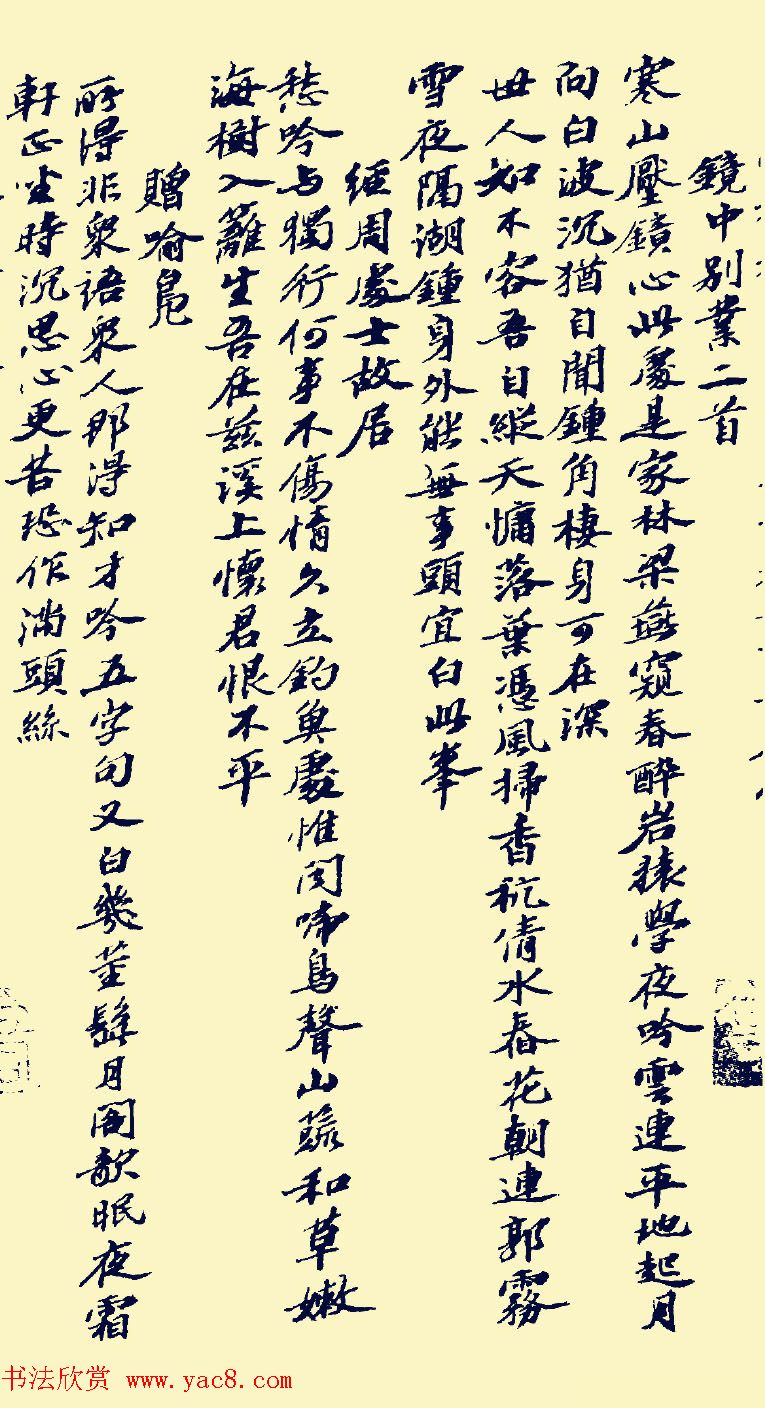 鏡中别業二首
寒山壓鏡心此處是家林梁燕窺春醉岩猿學夜吟雲連平地起月
向白波沉猶自聞鍾角棲身可在深
世人知不容吾自縱天慵落葉憑風掃香秔倩水舂花朝連郭霧
雪夜隔湖鍾身外能無事頭宜白此峯
經周處士故居
愁吟与獨行何事不傷情久立釣魚處惟聞啼鳥聲山蔬和草嫩
海樹入籬生吾在兹溪上懷君恨不平
贈喻鳧
所得非衆語衆人那得知才吟五字句又白幾莖髭月閣欹眠夜霜
軒正坐時沉思心更苦恐作滿頭絲
书法欣赏 www.yac8.com